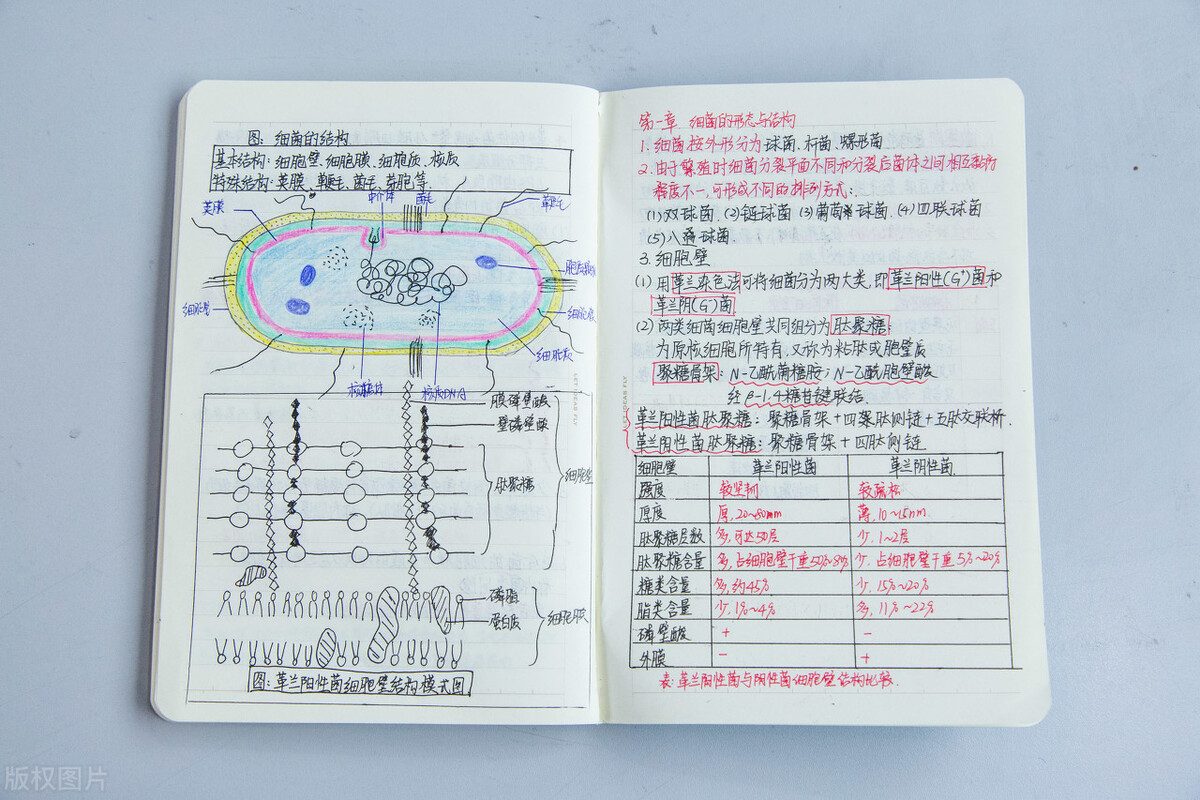 图: 细菌的结构
基本结构: 细胞壁、细胞膜、细胞质、核质
特殊结构: 荚膜、鞭毛、菌毛、芽胞等.
荚膜
中介体
菌毛
鞭毛
细胞壁
细胞膜
细胞质
核糖体
核质DNA
膜磷壁酸
壁磷壁酸
肽聚糖
细胞壁
磷脂
蛋白质
细胞膜
图: 革兰阳性菌细胞壁结构模式图
第一章 细菌的形态与结构
1. 细菌按外形分为球菌、杆菌、螺形菌
2. 由于繁殖时细菌分裂平面不同和分裂后菌体之间相互黏附
程度不一, 可形成不同的排列方式:
(1) 双球菌. (2) 链球菌 (3) 葡萄球菌. (4) 四联球菌
(5) 八叠球菌.
3. 细胞壁
(1) 用革兰染色法可将细菌分为两大类, 即革兰阳性(G⁺)菌和
革兰阴(G⁻)菌
(2) 两类细菌细胞壁共同组分为肽聚糖
为原核细胞所特有, 又称为粘肽或胞壁质
聚糖骨架: N-乙酰葡糖胺; N-乙酰胞壁酸
经β-1.4糖苷键联结.
革兰阳性菌肽聚糖: 聚糖骨架+四聚肽侧链+五肽交联桥.
革兰阴性菌肽聚糖: 聚糖骨架+四肽侧链
细胞壁 革兰阳性菌 革兰阴性菌
强度 较坚韧 较疏松
厚度 厚, 20~80nm 薄, 10~15nm
肽聚糖层数 多, 可达50层 少, 1~2层
肽聚糖含量 多, 占细胞壁干重50%~80% 少, 占细胞壁干重5%~20%
糖类含量 多, 约45% 少, 15%~20%
脂类含量 少, 1%~4% 多, 11%~22%
磷壁酸 + -
外膜 - +
表: 革兰阳性菌与阴性菌细胞壁结构比较.
版权图片